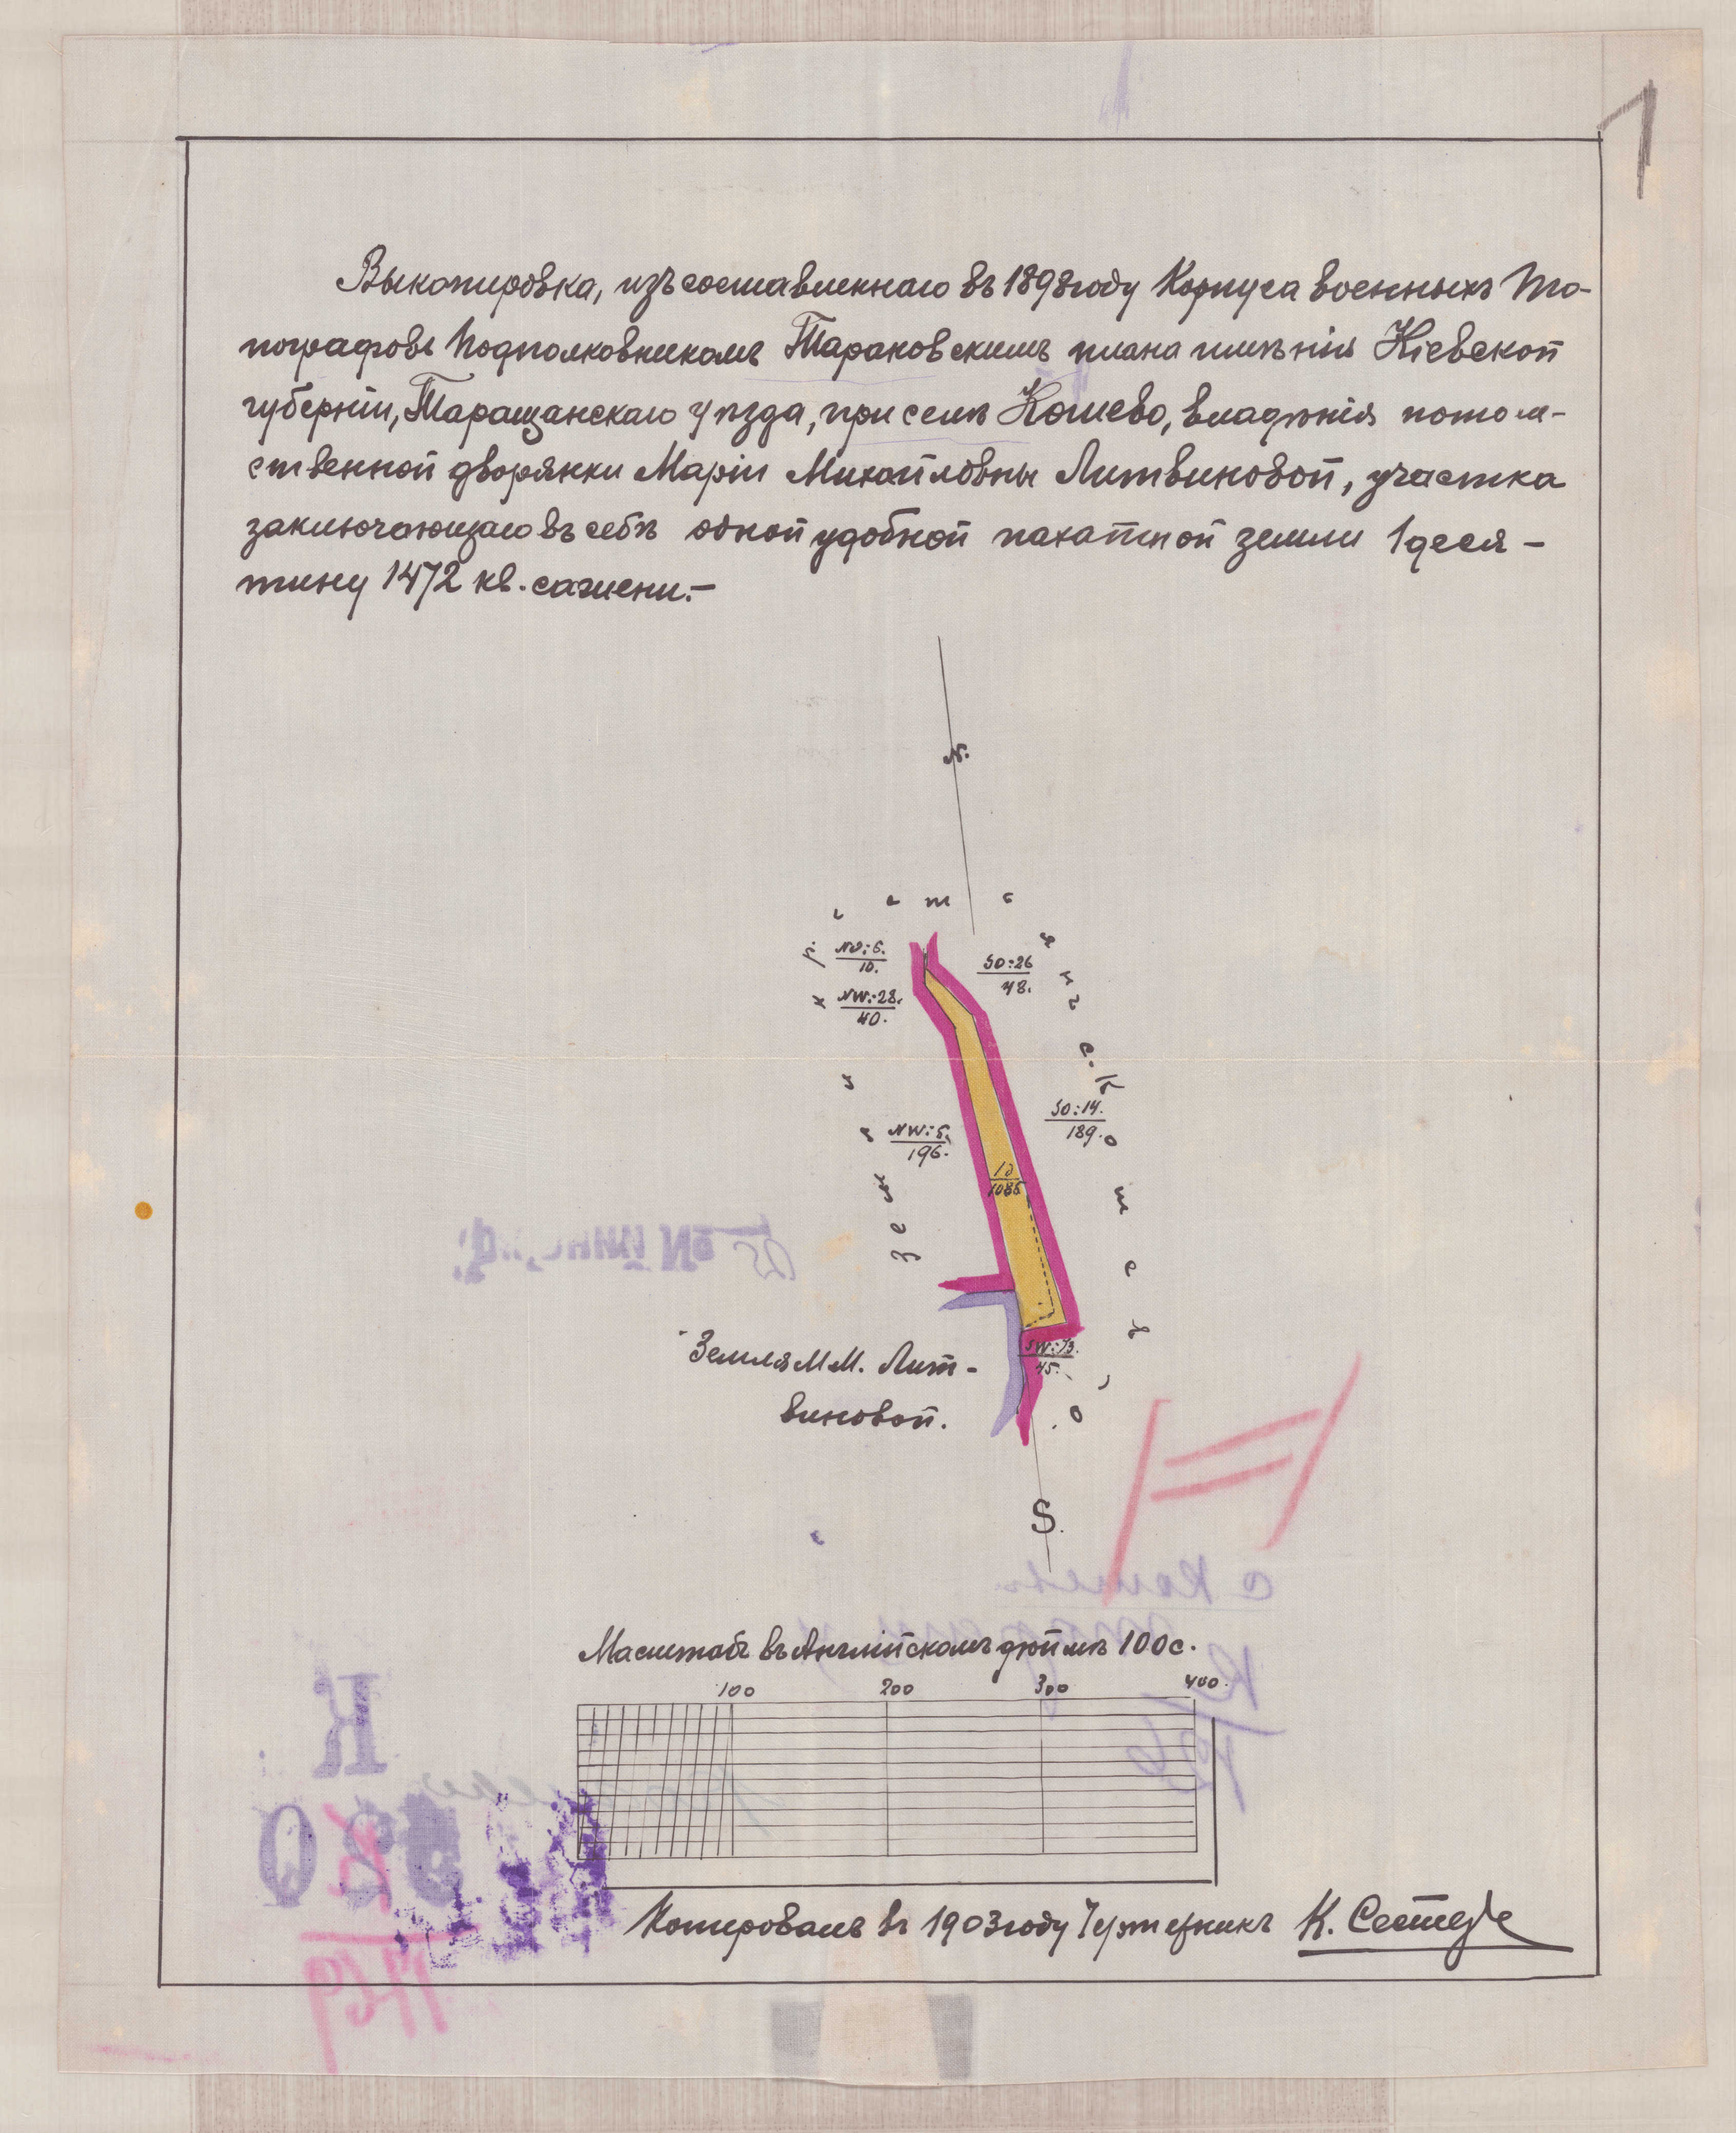 1
Выкопировка, изъ составленнаго въ 1898 году Корпуса военныхъ То-
пографовъ Подполковникомъ Тараковскимъ плана имѣнія Кіевской
губерніи, Таращанскаго уѣзда, при селѣ Кошево, владѣнія потом-
ственной дворянки Маріи Михайловны Литвиновой, участка
заключающаго въ себѣ одной удобной пахатной земли 1 деся-
тину 1472 кв. сажени.-
N.
NO:6.
10.
SO:26
48.
NW:28.
40.
SO:14.
189.
NW:5.
196.
1д
1086
SW:73.
45.
Земля М М. Лит-
виновой.
Земли крестьянъ с. Кошево.
S.
Масштабъ въ Англійскомъ дюймѣ 100 с.
100 200 300 400.
Копировалъ въ 1903 году Чертежникъ К.